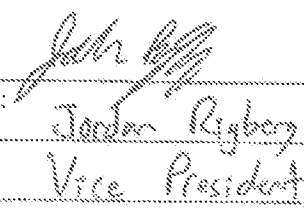 :
Jordan Rigberg
Vice President